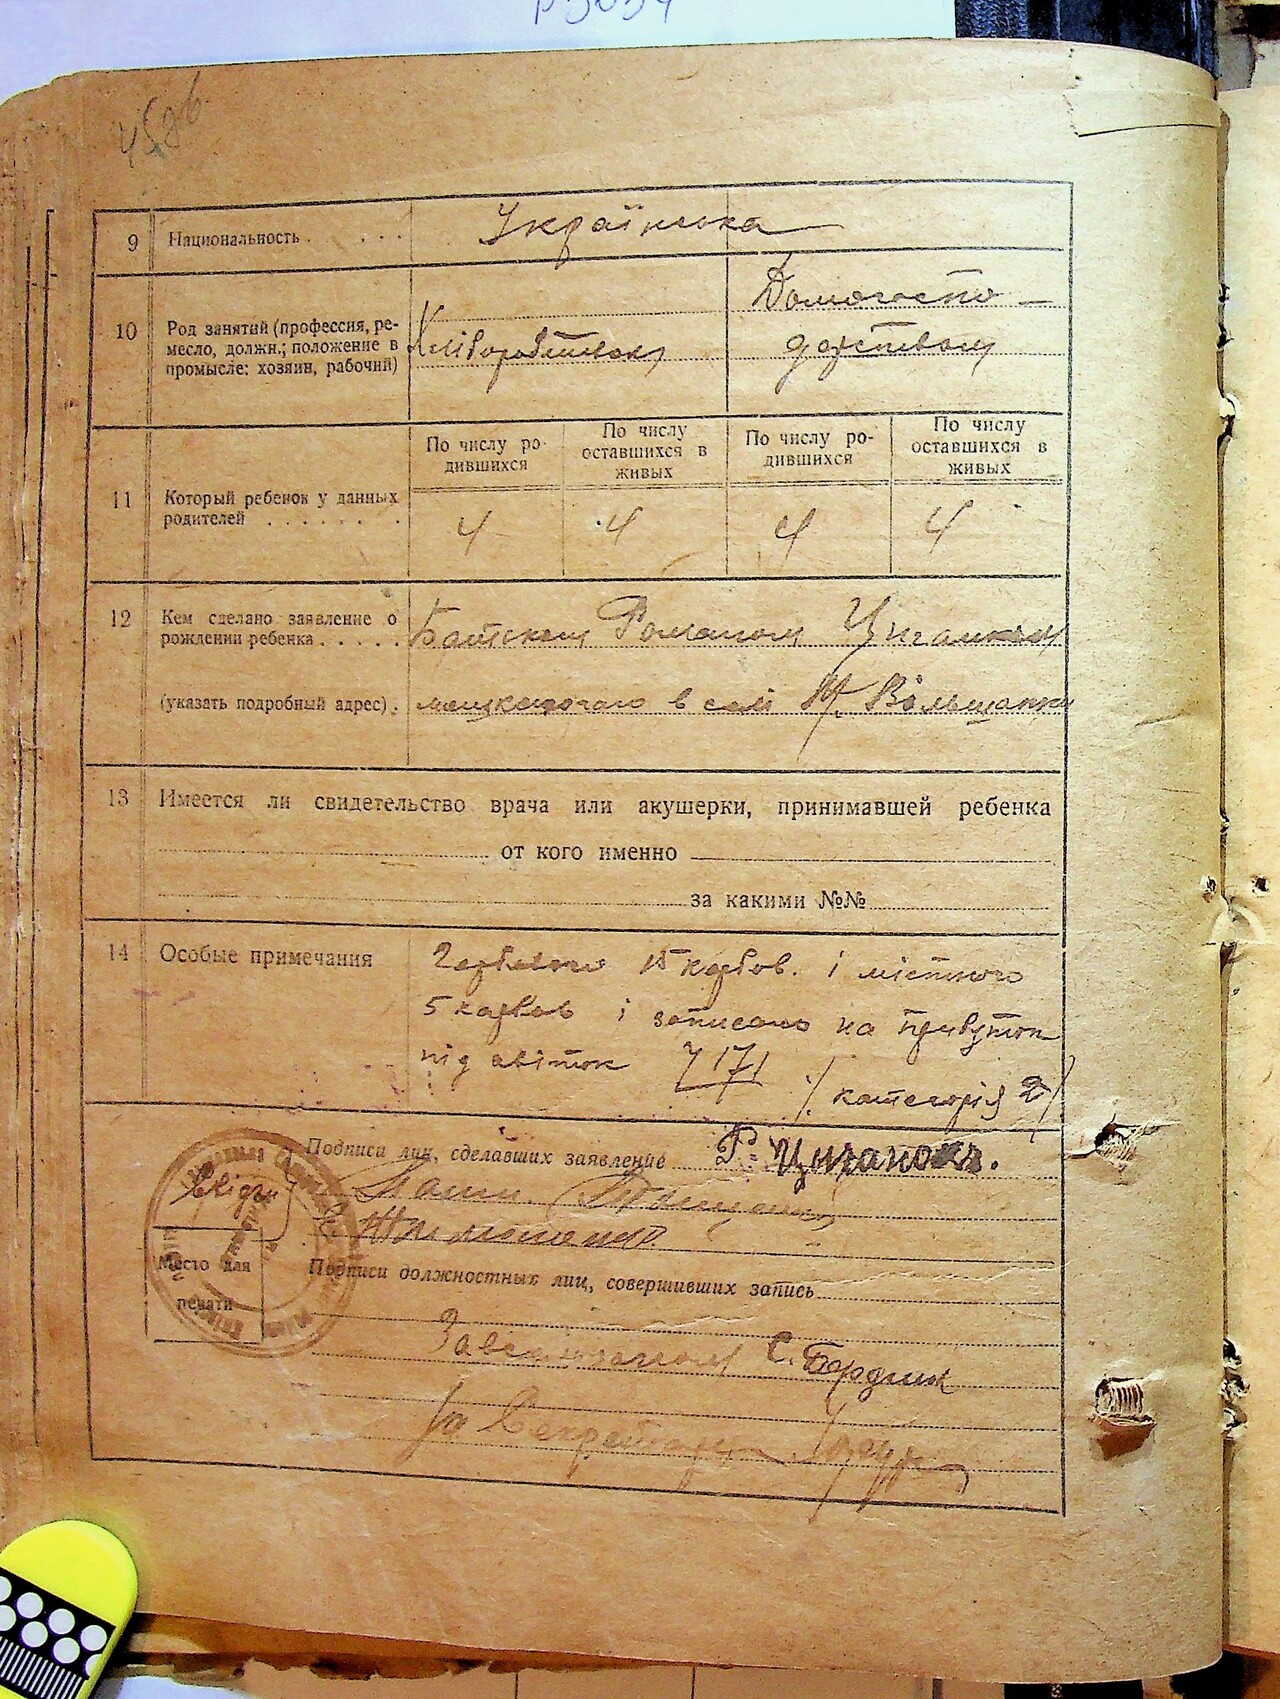 45об
9 Национальность . . . . Українська
10 Род занятий (профессия, ре-
месло, должн.; положение в
промысле: хозяин, рабочий)
Домогоспо-
дарством
11 Который ребенок у данных
родителей . . . . . . .
По числу ро-
дившихся
По числу
оставшихся в
живых
По числу ро-
дившихся
По числу
оставшихся в
живых
4 4 4 4
12 Кем сделано заявление о
рождении ребенка . . . . . Батьком Романом Циганком
(указать подробный адрес) . в селі М. Вільшанки
13 Имеется ли свидетельство врача или акушерки, принимавшей ребенка
от кого именно
за какими №№
14 Особые примечания
Гербового 15 карбов. і містного
5 карбов і записано на прибуток
під квіток 7171
/категорія 2/
Подписи лиц, сделавших заявление Р. Циганок.
Место для
печати
Подписи должностных лиц, совершивших запись
С. Бардик
Секретаря